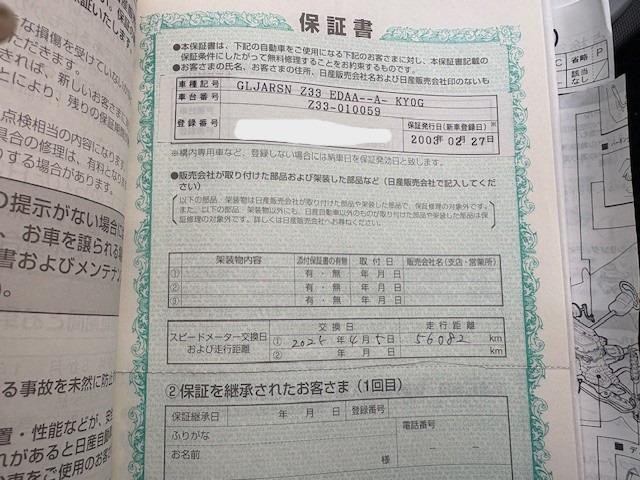 保証書
●本保証書は、下記の自動車をご使用になる下記のお客さまに対し、本保証書記載の
保証条件にしたがって無料修理することをお約束するものです。
●お客さまの氏名、お客さまの住所、日産販売会社名および日産販売会社印のないも
車種記号
GLJARSN Z33 EDAA--A- KY0G
車台番号
Z33-010059
登録番号
保証発行日(新車登録日)※
2003年 02月 27日
※構内専用車など、登録しない場合には納車日を保証発効日と致します。
●販売会社が取り付けた部品および架装した部品など(日産販売会社で記入してくだ
さい)
以下の部品、架装物は日産販売会社が取り付けた部品や架装した部品で、保証修理の対象外です。
また、以下の部品、架装物以外にも、日産自動車以外のものが取り付けた部品や架装した部品は保
証修理の対象外です。詳しくは日産販売会社へお尋ねください。
架装物内容 添付保証書の有無 取付日 販売会社名(支店・営業所)
① 有・無 年 月 日
② 有・無 年 月 日
③ 有・無 年 月 日
スピードメーター交換日
および走行距離
交換日 走行距離
① 年4月5日 56082 km
② 年 月 日 km
②保証を継承されたお客さま(1回目)
保証継承日 年 月 日 登録番号
ふりがな
電話番号
お名前 様
な損傷を受けていない
ただきます。
きれば、新しいお客さまに
とにより、残りの保証期
点検相当の内容になります
具合の修理は、有料となり
する場合があります。
の提示がない場合に
、お車を譲られる
書およびメンテナ
る事故を未然に防止
置・性能などが、安
れがあると日産自動
車をご使用のお客
省略
P
該当
なし